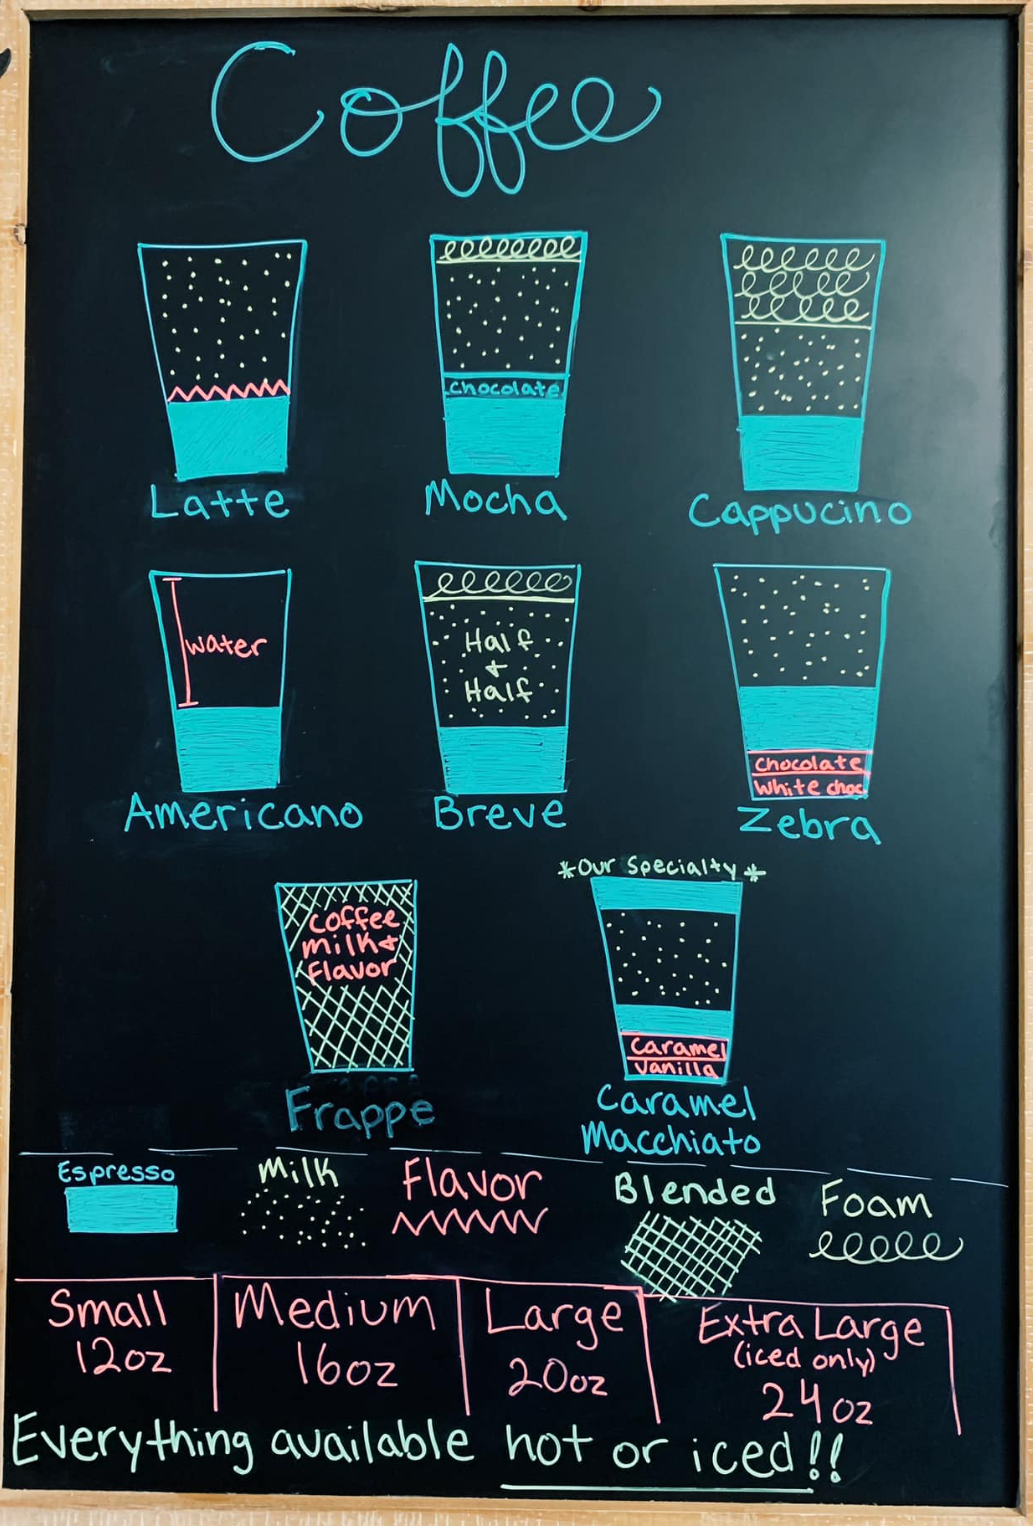 Coffee
Chocolate
Latte
Mocha
Cappucino
water
Half
+
Half
Chocolate
White choc
Americano
Breve
Zebra
*Our Specialty*
Coffee
milk +
Flavor
Caramel
Vanilla
Frappe
Caramel
Macchiato
Espresso
Milk
Flavor
Blended
Foam
Small
12oz
Medium
16oz
Large
20oz
Extra Large
(iced only)
24oz
Everything available hot or iced!!